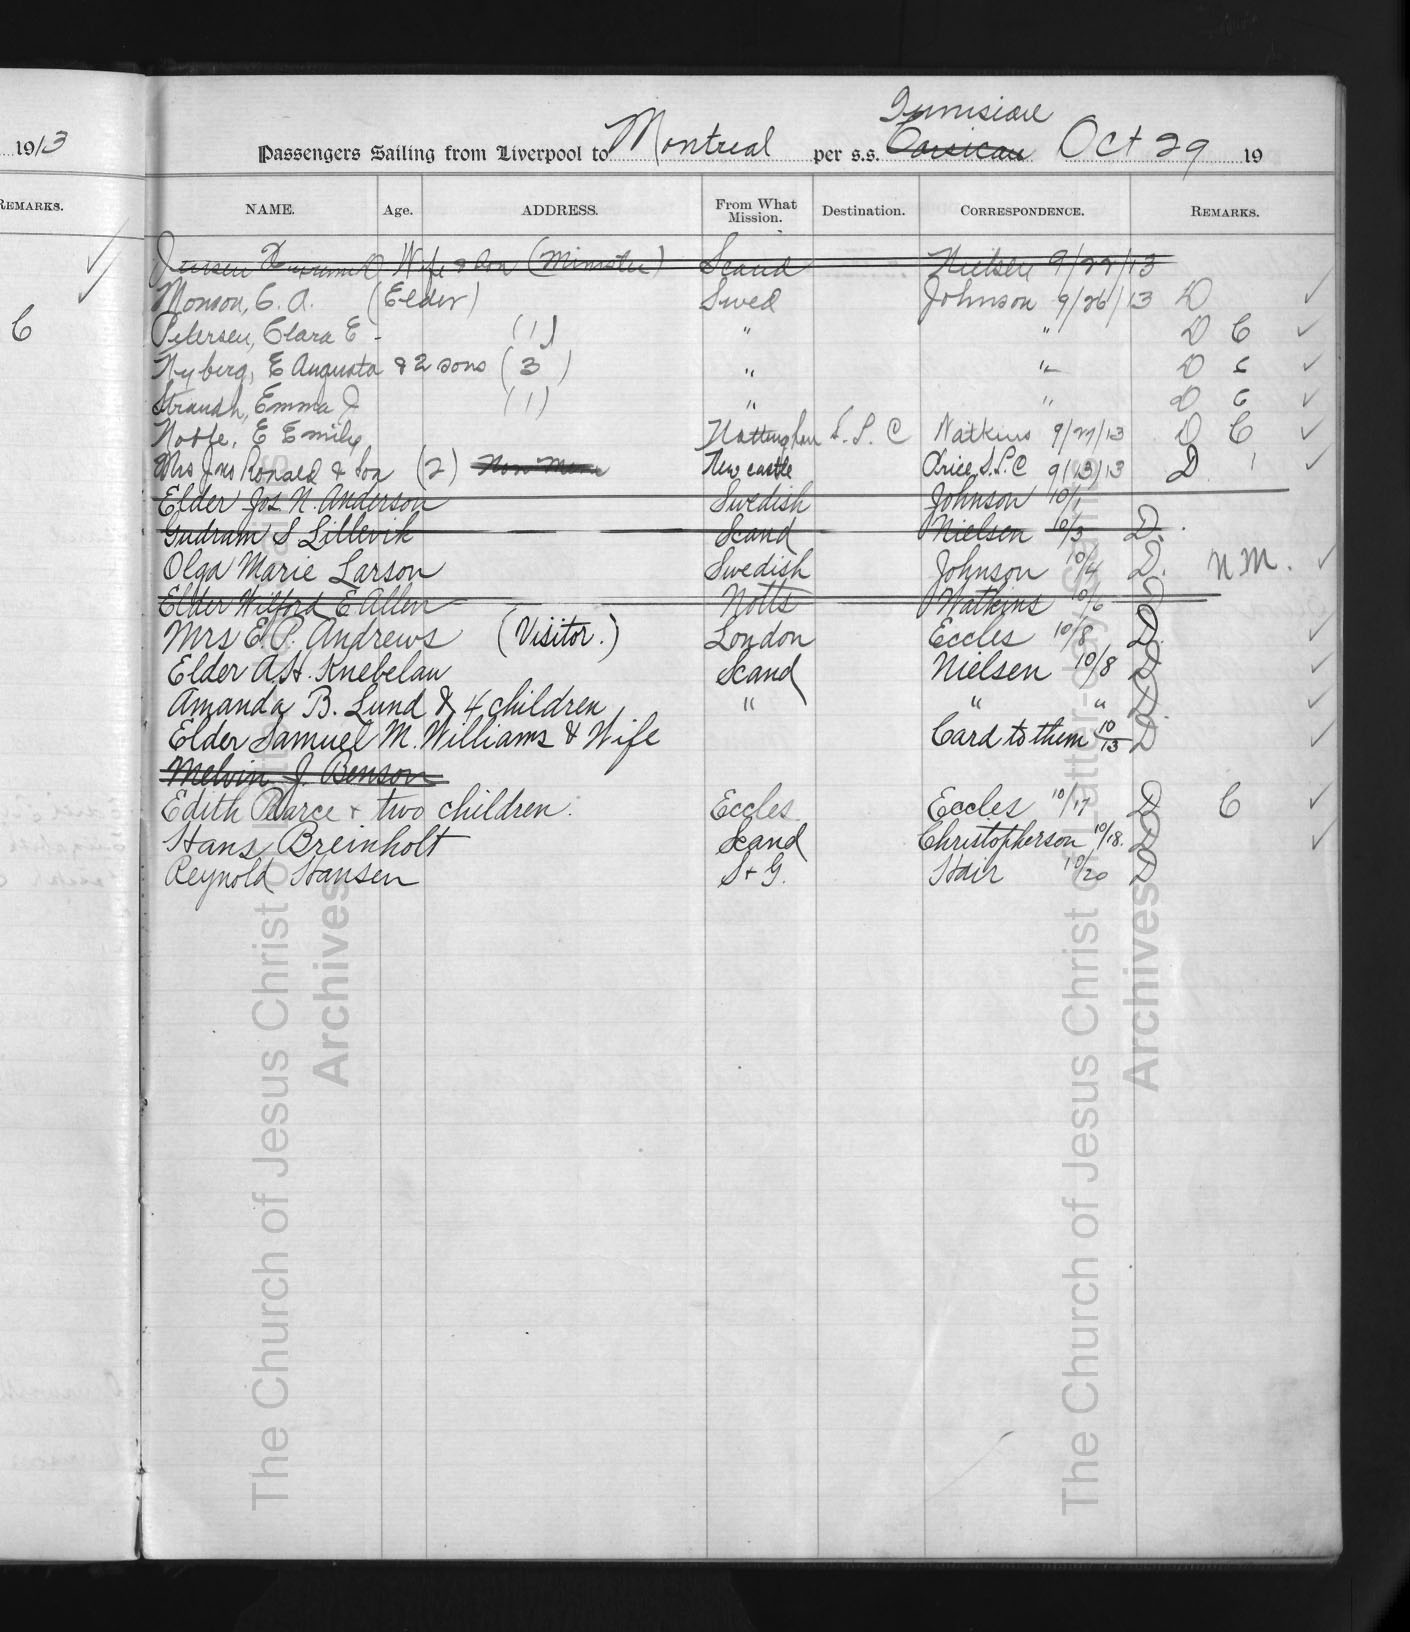 1913
REMARKS.
C
Tunisian
Passengers Sailing from Liverpool to Montreal per s.s. Corsican Oct 29 19
NAME. Age. ADDRESS. From What Mission. Destination. CORRESPONDENCE. REMARKS.
Wife & Son (Minister) Scand Nielsen 9/22/13
Monson, C. A. (Elder) Swed Johnson 9/26/13 D ✓
Petersen, Clara E - (1) " " D C ✓
Nyberg, E Augusta & 2 sons (3) " " D C ✓
Emma J (1) " " D C ✓
E Emily Nottingham S. P. C Watkins 9/27/13 D C ✓
Mrs Jno Ronald & Son (2) Newcastle Price S.P.C 9/13/13 D 1 ✓
Elder Jos. N. Anderson Swedish Johnson 10/1
Gudram S Lillevik Scand Nielsen 10/3 D.
Olga Marie Larson Swedish Johnson 10/4 D. N.M. ✓
Elder Wilford E Allen Notts Watkins 10/6 D
Mrs E. P. Andrews (Visitor.) London Eccles 10/8 D. ✓
Elder A.H. Knebelau Scand Nielsen 10/8 D ✓
Amanda B. Lund & 4 children " " " D ✓
Elder Samuel M. Williams & Wife Card to them 10/13 D ✓
Melvin J. Benson
Edith Pearce + two children. Eccles Eccles 10/17 D C ✓
Hans Breinholt Scand Christopherson 10/18. D ✓
Reynold Hansen S+G. Hair 10/20 D
The Church of Jesus Christ of Latter-day Saints Archives
The Church of Jesus Christ of Latter-day Saints Archives